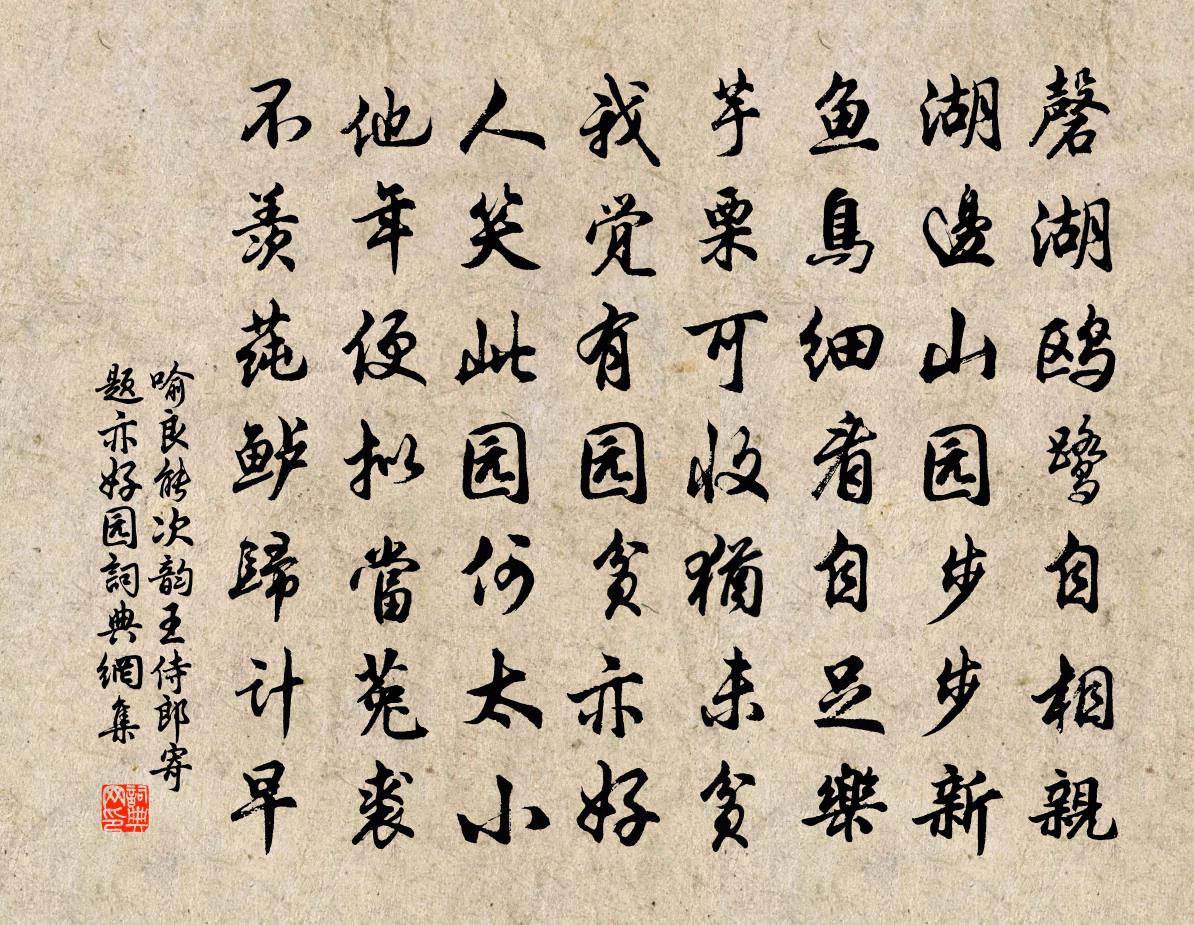 磬湖鸥鹭自相親
湖邊山园步步新
鱼鳥细看自足樂
芋栗可收猶未贫
我觉有园贫亦好
人笑此园何太小
他年便拟當菟裘
不羡莼鲈歸计早
喻良能次韵王侍郎寄
题亦好园詞典網集
詞典
网印